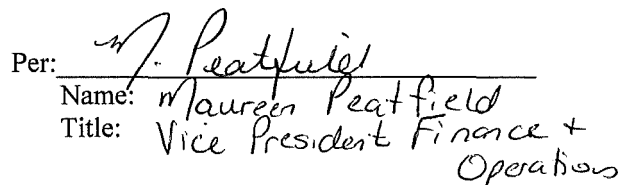 Per: M. Peatfield
Name: Maureen Peatfield
Title: Vice President Finance +
Operations